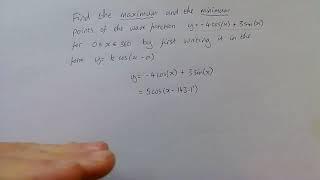 Find the maximum and the minimum
points of the wave function y = -4cos(x) + 3sin(x)
for 0 ≤ x ≤ 360 by first writing it in the
form y = k cos(x - α)
y = -4cos(x) + 3sin(x)
= 5cos(x - 143.1°)